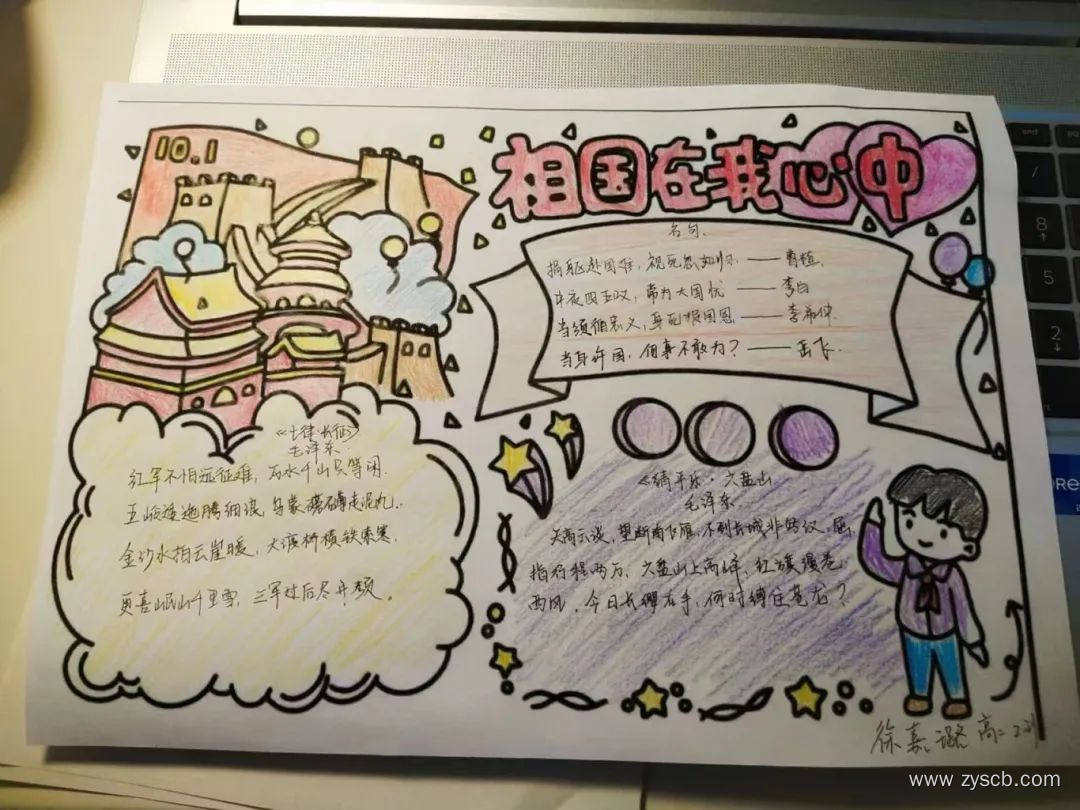 10.1
祖国在我心中
名句.
捐躯赴国难，视死忽如归. —— 曹植.
中夜四五叹，常为大国忧 —— 李白
当须徇忠义，身死报国恩 —— 李希仲.
当身许国，何事不敢为？—— 岳飞.
《七律·长征》
毛泽东.
红军不怕远征难，万水千山只等闲.
五岭逶迤腾细浪，乌蒙磅礴走泥丸.
金沙水拍云崖暖，大渡桥横铁索寒.
更喜岷山千里雪，三军过后尽开颜。
《清平乐·六盘山
毛泽东
天高云淡，望断南飞雁，不到长城非好汉，屈
指行程两万，六盘山上高峰，红旗漫卷
西风，今日长缨在手，何时缚住苍龙？
徐嘉璐 高二
www.zyscb.com
8
5
2